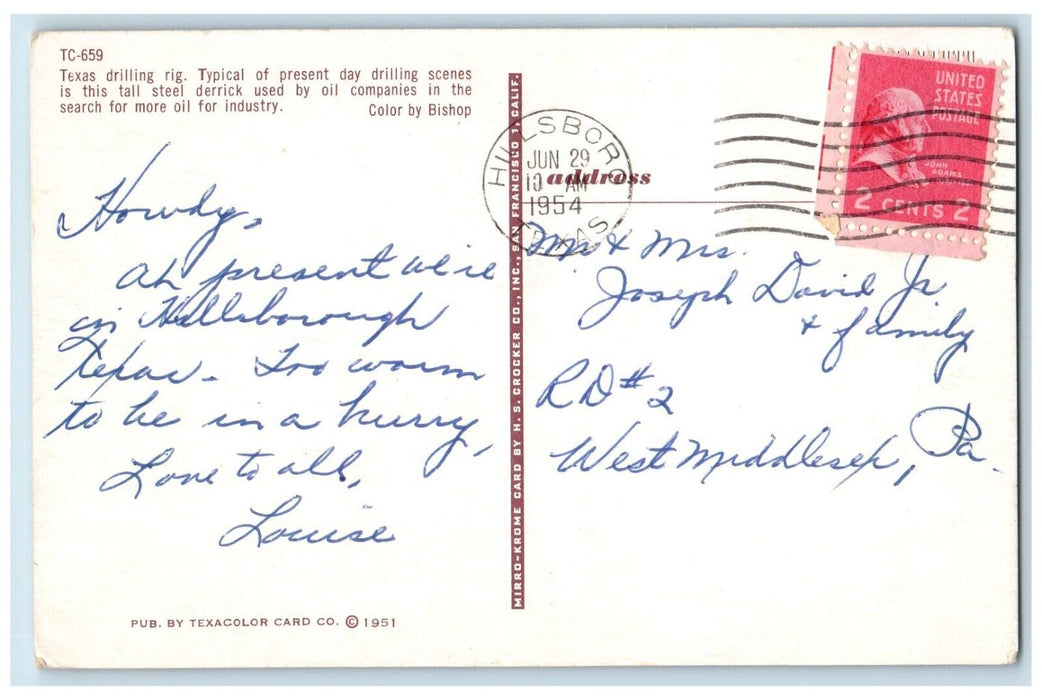 TC-659
Texas drilling rig. Typical of present day drilling scenes
is this tall steel derrick used by oil companies in the
search for more oil for industry. Color by Bishop
Howdy,
At present we're
in Hillsborough
Texas - Too warm
to be in a hurry,
Love to all,
Louise
PUB. BY TEXACOLOR CARD CO. © 1951
MIRRO-KROME CARD BY H. S. CROCKER CO., INC., SAN FRANCISCO 1, CALIF.
HILLSBORO
JUN 29
10 AM
1954
TEXAS
address
UNITED
STATES
POSTAGE
JOHN
ADAMS
2 CENTS 2
Mr & Mrs.
Joseph David Jr.
& family
RD #2
West Middlesex, Pa.